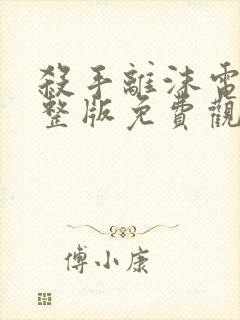 殺手離沫電
整版免費觀
傅小康